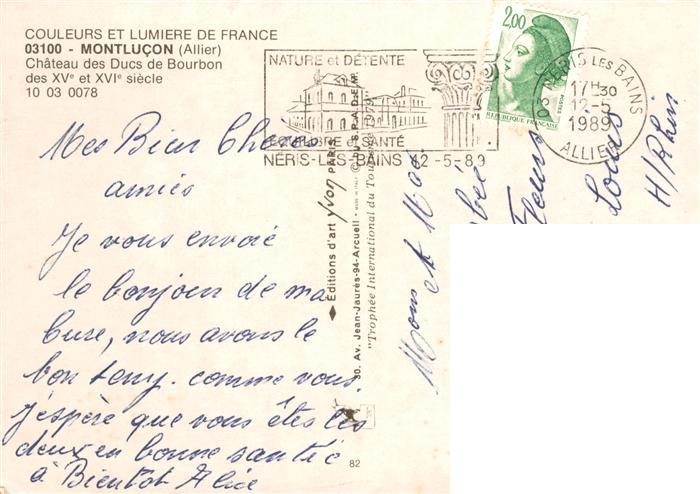 COULEURS ET LUMIERE DE FRANCE
03100 - MONTLUÇON (Allier)
Château des Ducs de Bourbon
des XVe et XVIe siècle
10 03 0078
NATURE et DÉTENTE
EQUILIBRE et SANTÉ
NÉRIS-LES-BAINS 12-5-89
2,00
REPUBLIQUE FRANÇAISE
03 NÉRIS LES BAINS
17H30
12-5
1989
ALLIER
Mes Bien Chers
amiés
Je vous envoie
le bonjour de ma
cure, nous avons le
bon temp. comme vous.
J'espère que vous êtes les
deux en bonne santée
à Bientôt Alice
Editions d'art Yvon PARIS
30. Av. Jean-Jaurès-94-Arcueil - MADE IN ITALY © by S.P.A.D.E.M.
"Trophée International du Tourisme 1979"
82
Mons et Mad
Fleurs
Louis
H/Rhin